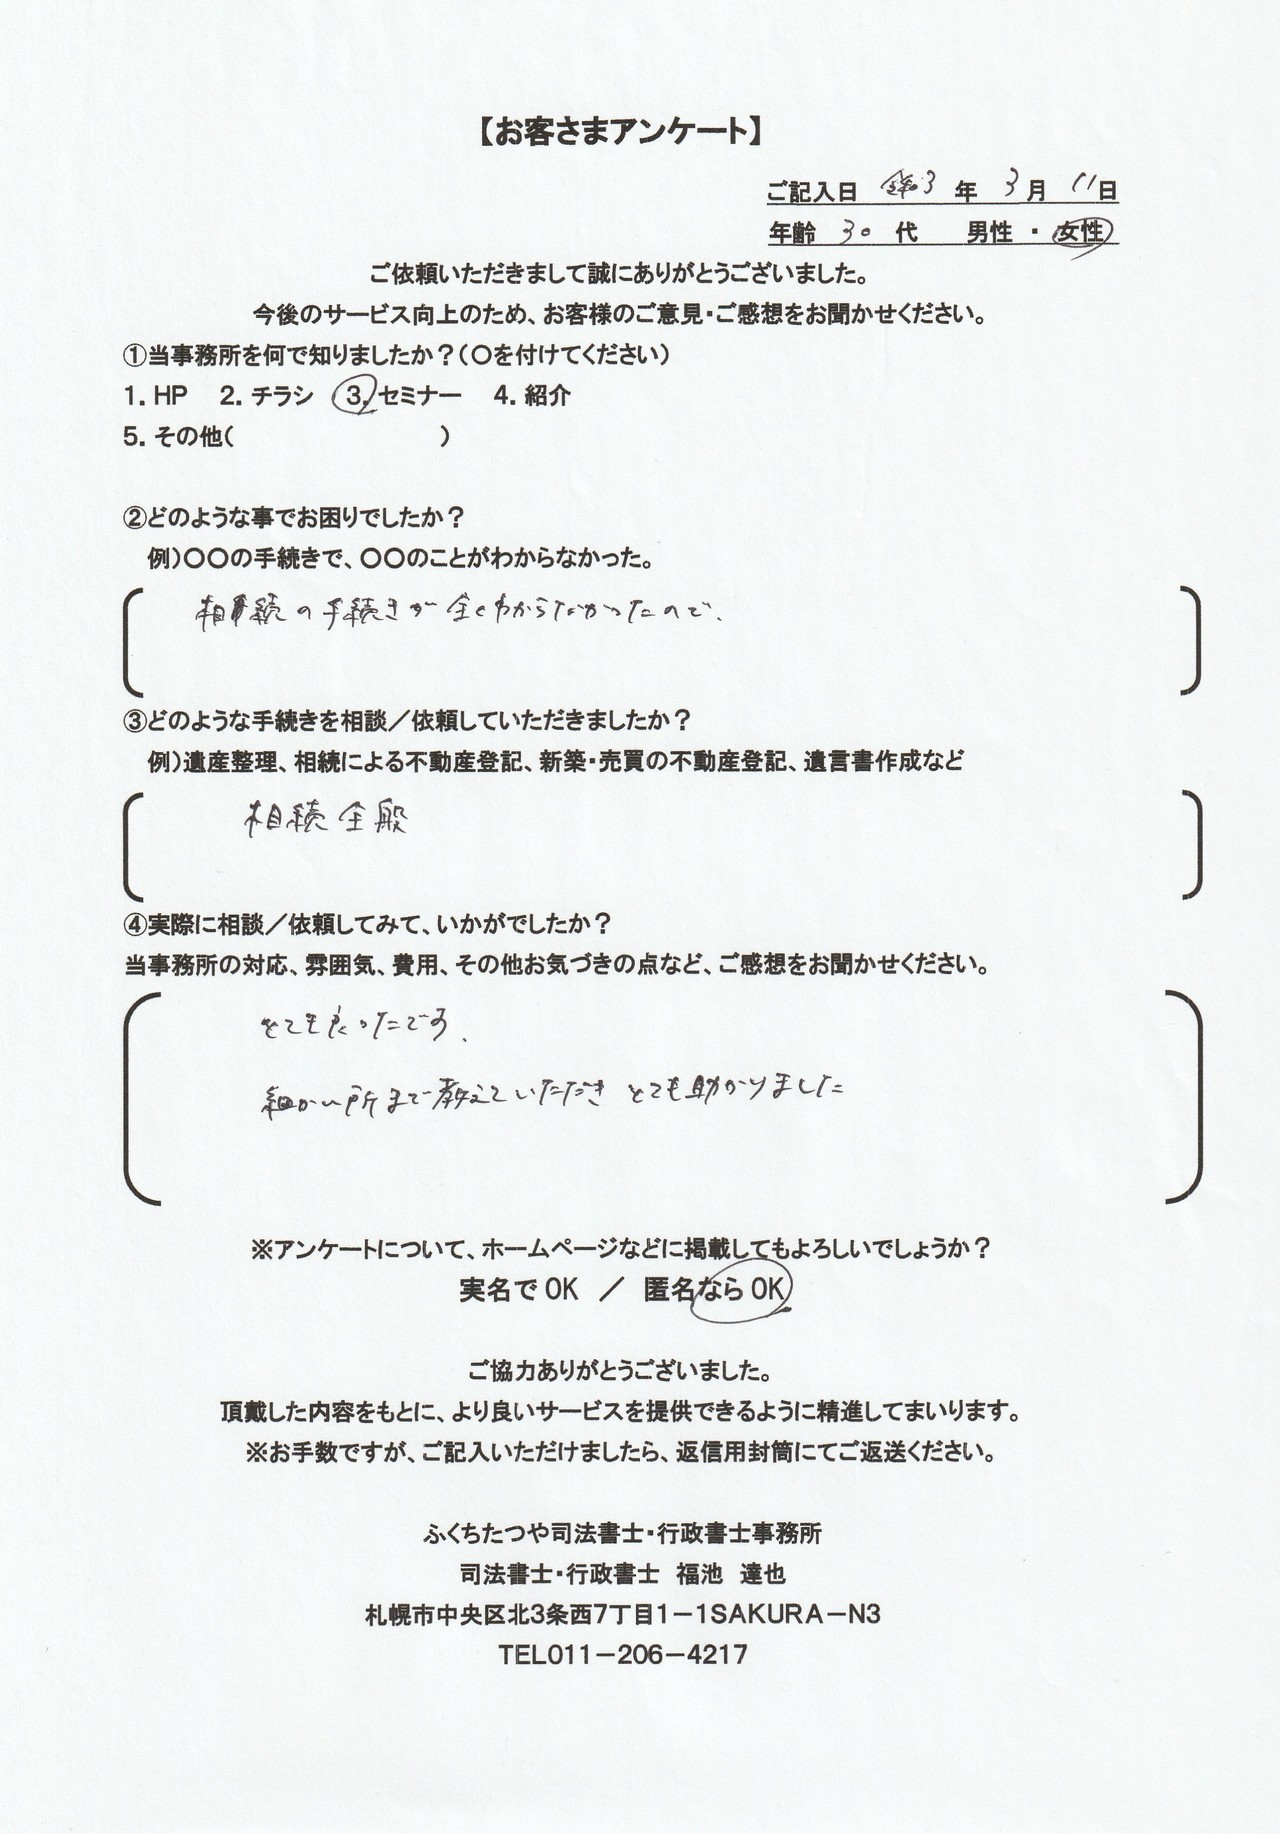 【お客さまアンケート】
ご記入日 令和3 年 3月 11日
年齢 30 代 男性 ・ 女性
ご依頼いただきまして誠にありがとうございました。
今後のサービス向上のため、お客様のご意見・ご感想をお聞かせください。
①当事務所を何で知りましたか？（〇を付けてください）
1. HP 2. チラシ 3. セミナー 4. 紹介
5. その他（ ）
②どのような事でお困りでしたか？
例）〇〇の手続きで、〇〇のことがわからなかった。
相続の手続きが全くわからなかったので.
③どのような手続きを相談／依頼していただきましたか？
例）遺産整理、相続による不動産登記、新築・売買の不動産登記、遺言書作成など
相続全般
④実際に相談／依頼してみて、いかがでしたか？
当事務所の対応、雰囲気、費用、その他お気づきの点など、ご感想をお聞かせください。
とても良ったです.
細かい所まで教えていただき とても助かりました
※アンケートについて、ホームページなどに掲載してもよろしいでしょうか？
実名で OK ／ 匿名なら OK
ご協力ありがとうございました。
頂戴した内容をもとに、より良いサービスを提供できるように精進してまいります。
※お手数ですが、ご記入いただけましたら、返信用封筒にてご返送ください。
ふくちたつや司法書士・行政書士事務所
司法書士・行政書士 福池 達也
札幌市中央区北3条西7丁目1－1SAKURA－N3
TEL011－206－4217